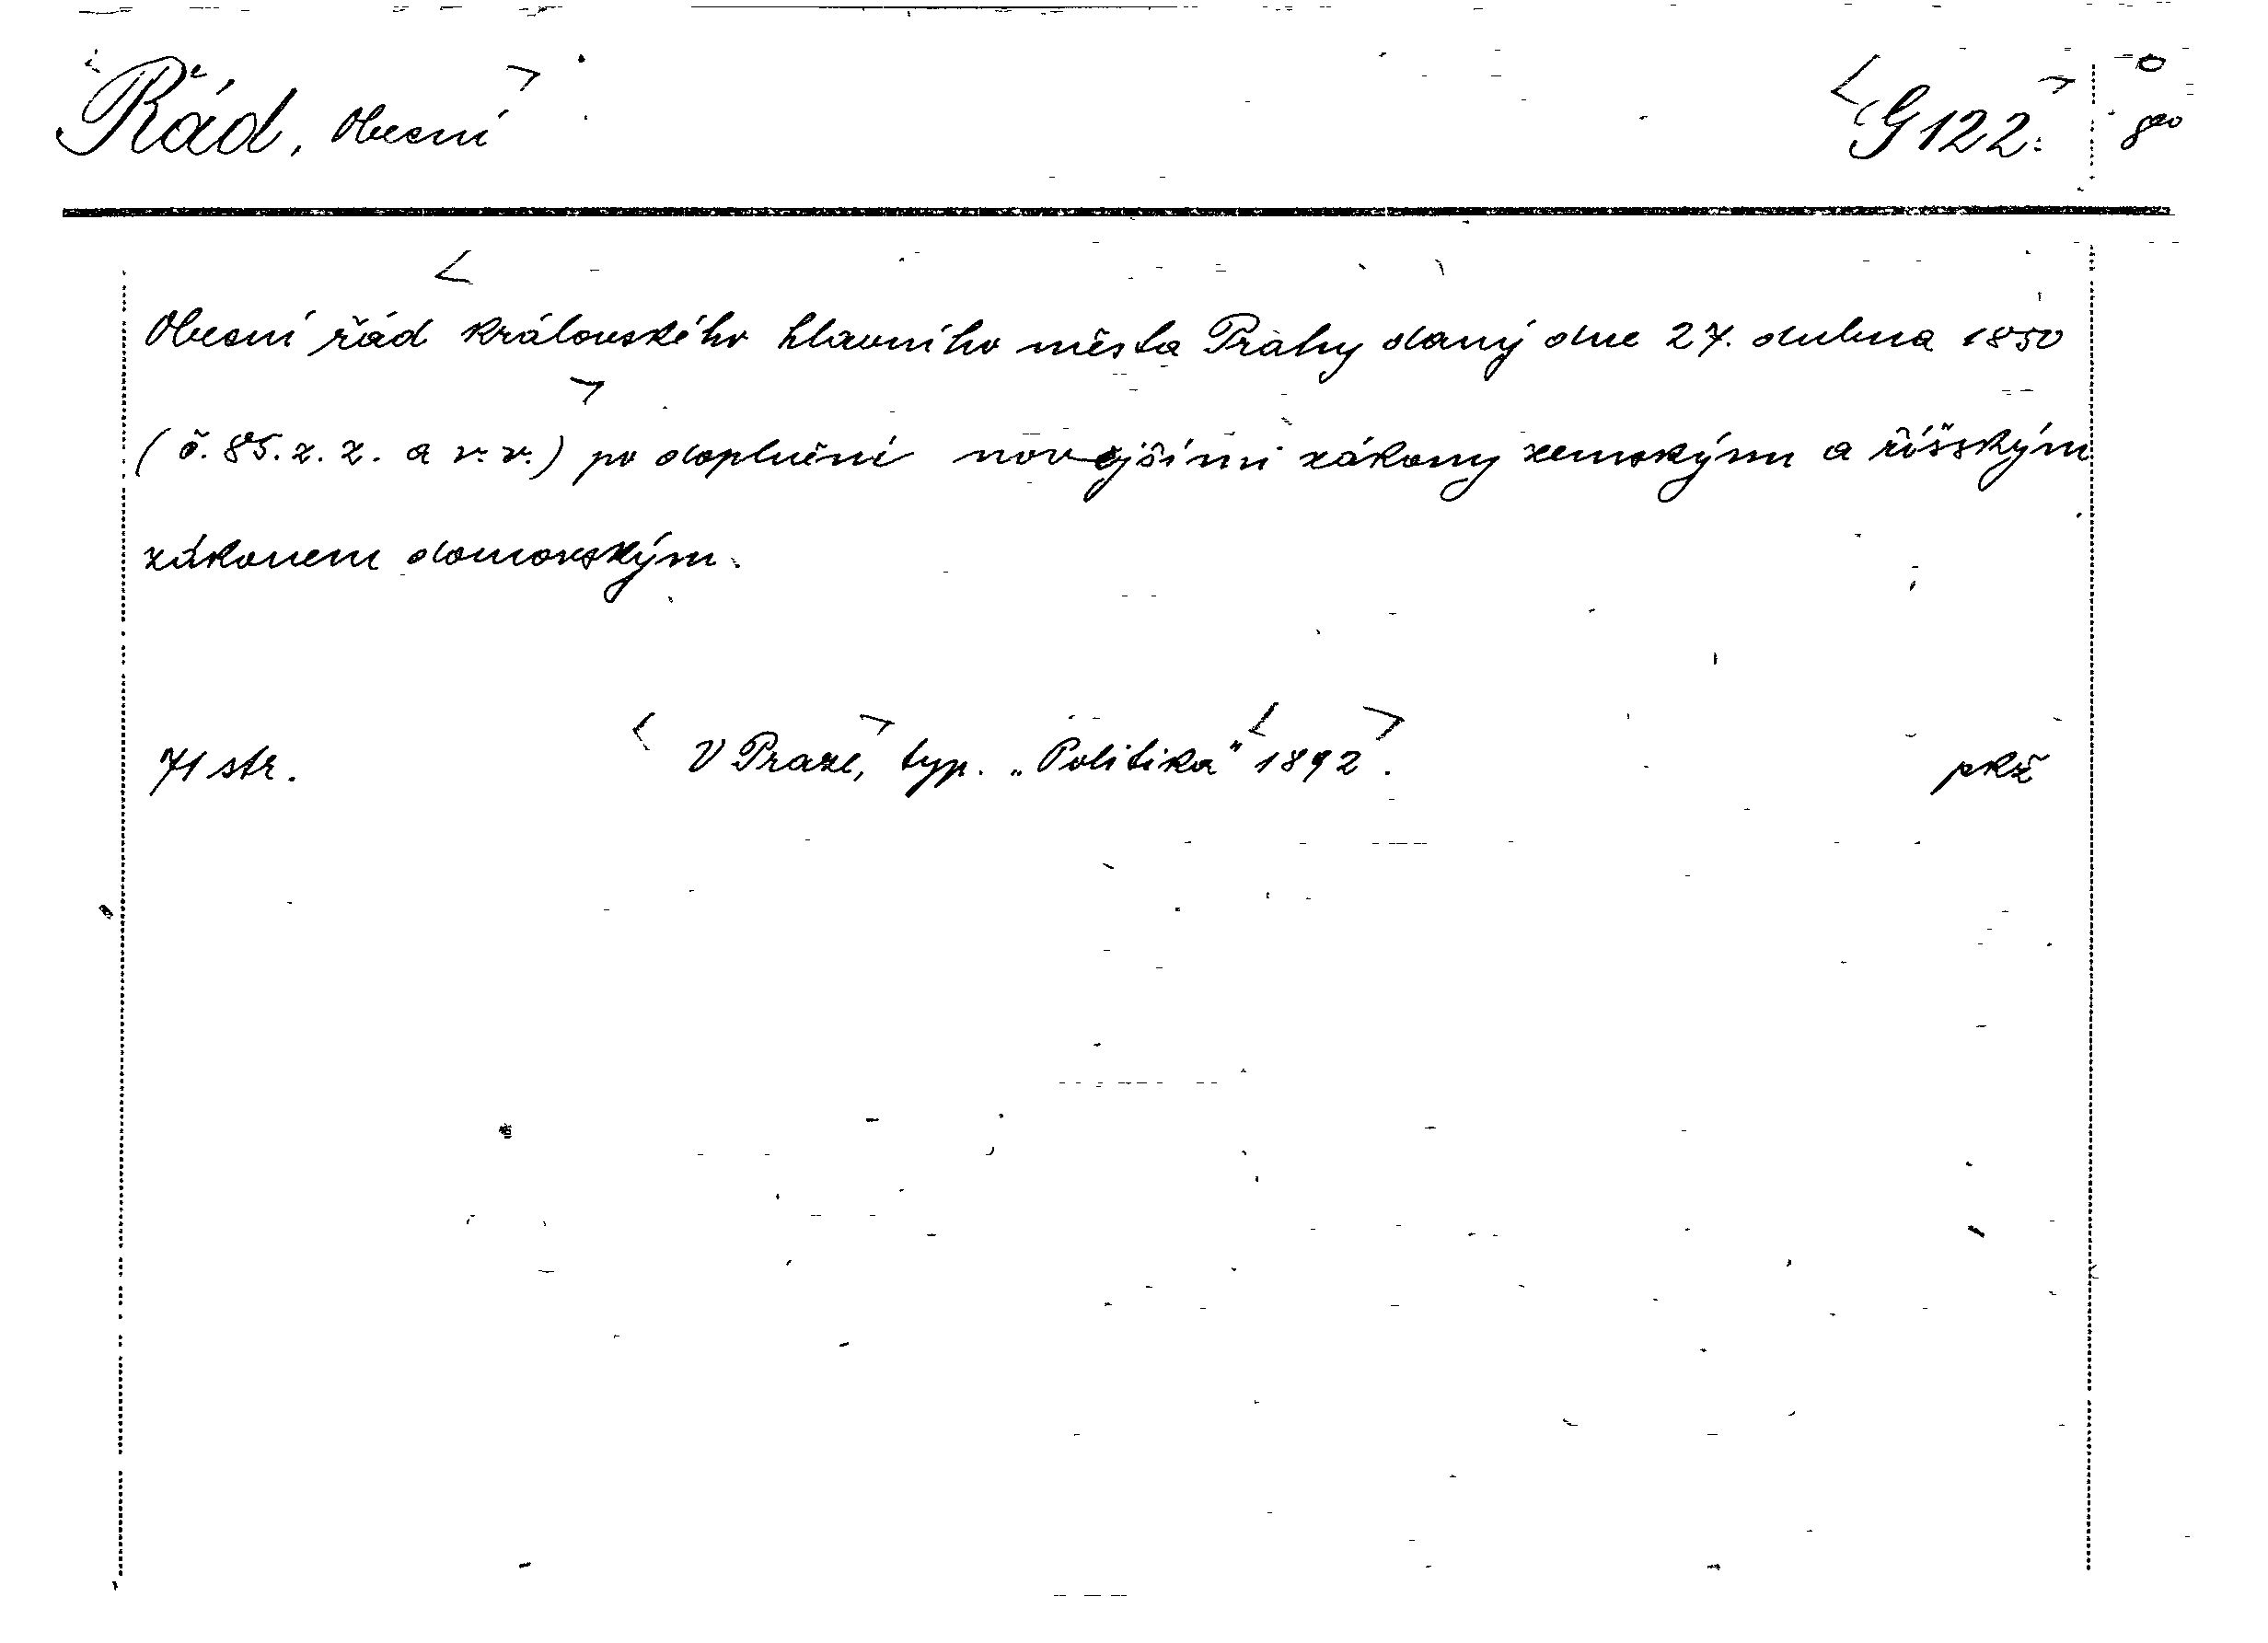 Řád, Obecní G 122. 8°
Obecní řád královského hlavního města Prahy daný dne 27. dubna 1850
(č. 85. z. z. a v. v.) po doplnění novějšími zákony zemskými a říšským
zákonem domovským.
71 str. V Praze, typ. „Politika“ 1892. pkž